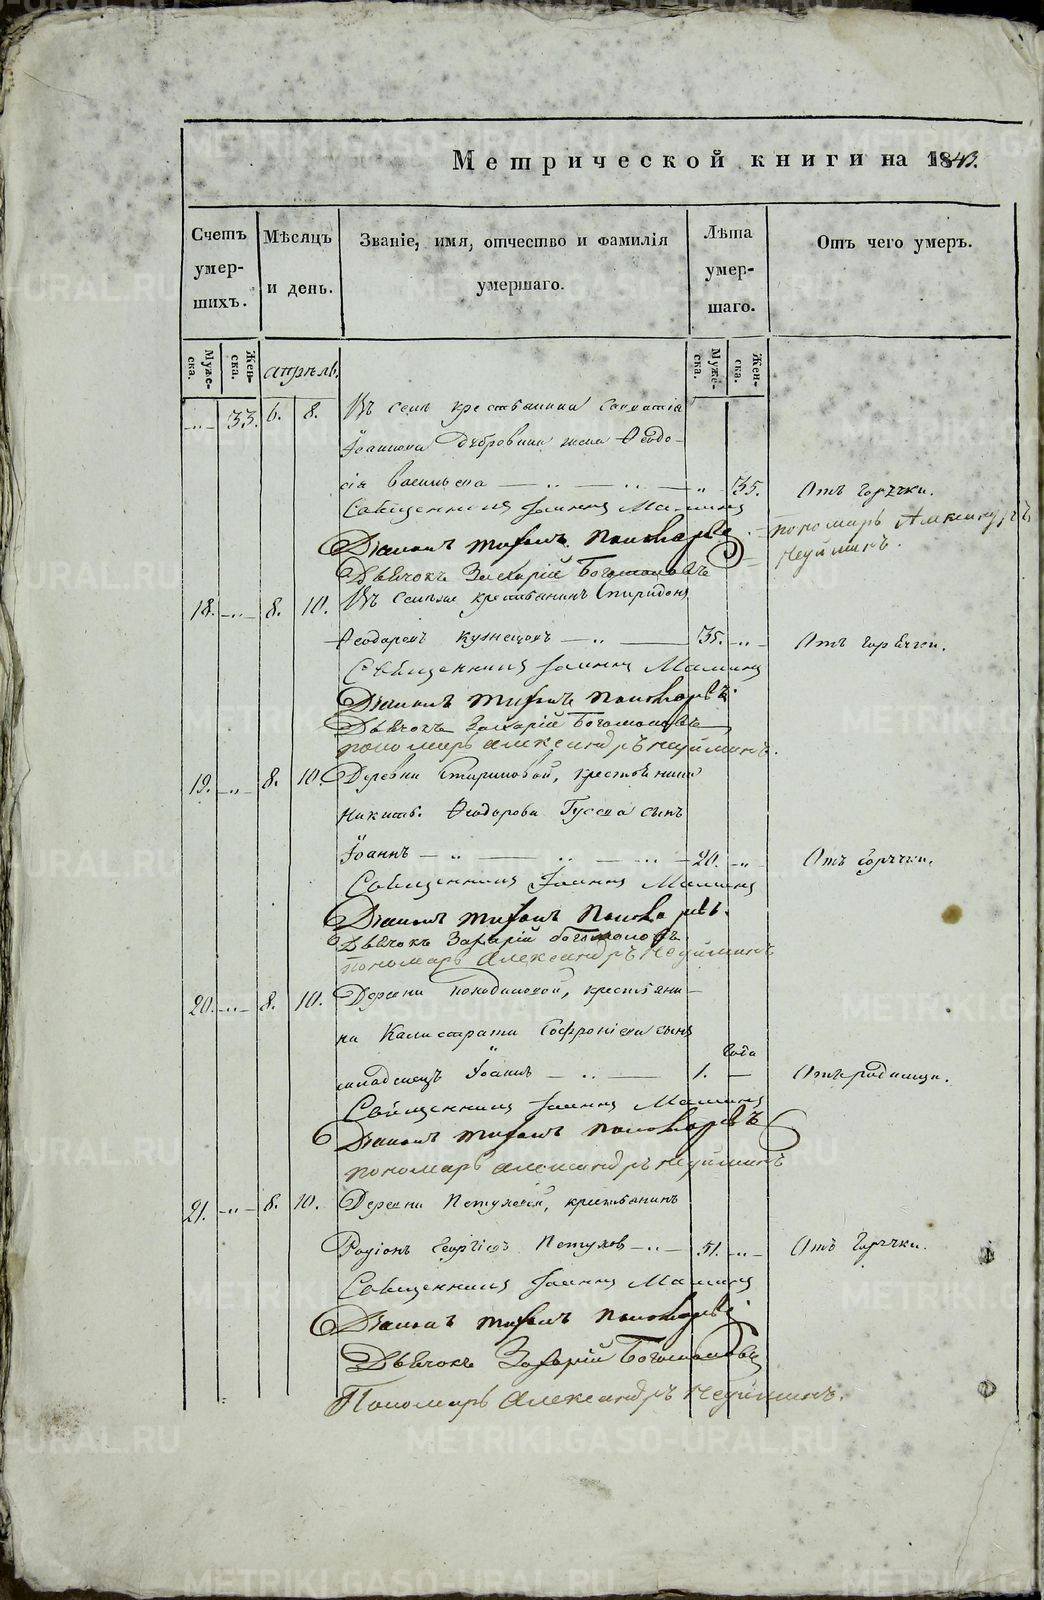 Метрической книги на 1843.
Счетъ умер- шихъ.
Мѣсяцъ и день.
Званіе, имя, отчество и фамилія умершаго.
Лѣта умер- шаго.
Отъ чего умеръ.
Муже- ска.
Жен- ска.
Апрѣль.
Муже- ска.
Жен- ска.
33. 6. 8. Въ селѣ крестьянина
Іоаннова Дубровина жена Ѳеодо-
сія Васильева 35. Отъ горячки.
Священникъ Іоаннъ Малинъ
Діаконъ Тихонъ Пономаревъ Пономарь Александръ
Неуйминъ.
Дьячокъ Захарій Богомоловъ
18. 8. 10. Въ селѣ крестьянинъ Спиридонъ
Ѳеодоровъ Кузнецовъ 35. Отъ горячки.
Священникъ Іоаннъ Малинъ
Діаконъ Тихонъ Пономаревъ
Дьячокъ Захарій Богомоловъ
Пономарь Александръ Неуйминъ.
19. 8. 10. Деревни крестьянина
Никиты Ѳеодорова Гусева сынъ
Іоаннъ 20. Отъ горячки.
Священникъ Іоаннъ Малинъ
Діаконъ Тихонъ Пономаревъ.
Дьячокъ Захарій Богомоловъ
Пономарь Александръ Неуйминъ
20. 8. 10. Деревни крестьяни-
на Калистрата Софроніева сынъ
года
младенецъ Іоаннъ 1. Отъ родимца.
Священникъ Іоаннъ Малинъ
Діаконъ Тихонъ Пономаревъ
Пономарь Александръ Неуйминъ
21. 8. 10. Деревни крестьянинъ
Родіонъ Георгіевъ Петухов 51. Отъ горячки.
Священникъ Іоаннъ Малинъ
Діаконъ Тихонъ Пономаревъ
Дьячокъ Захарій Богомоловъ
Пономарь Александръ Неуйминъ.
METRIKI.GASO-URAL.RU